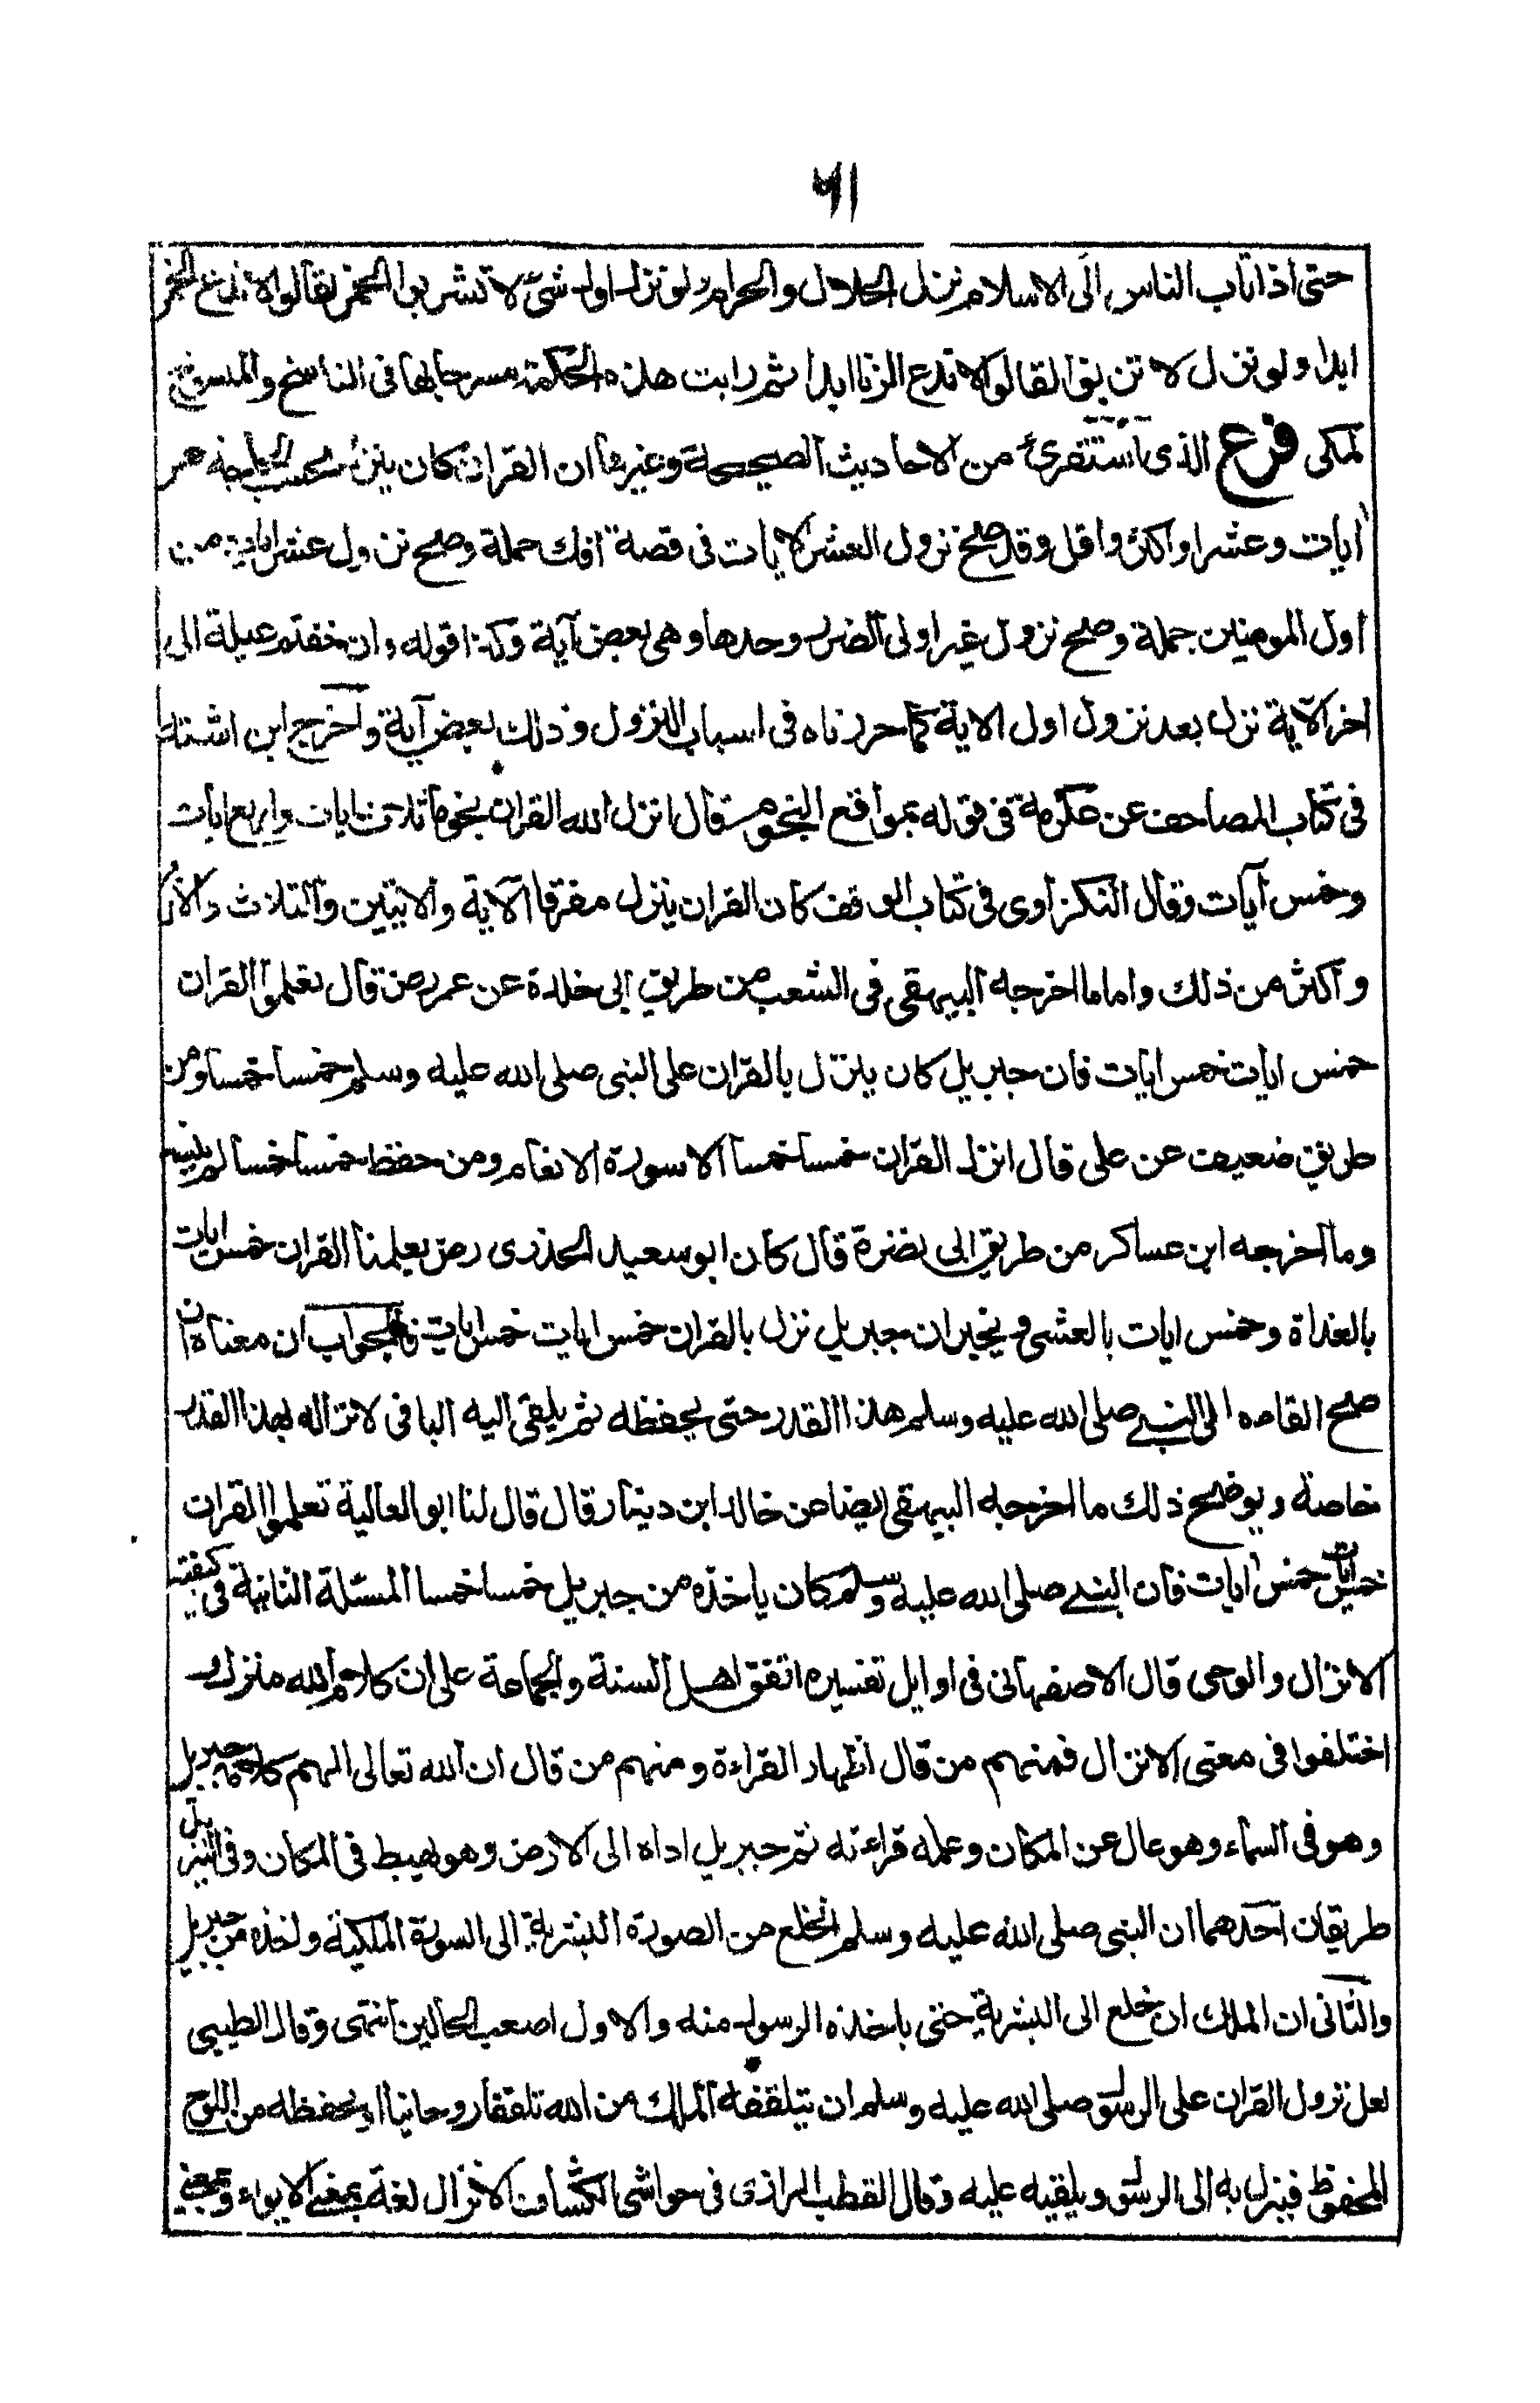 ٧١
حتى اذا تاب الناس الى الاسلام نزل الحلال والحرام ولو نزل اول شئ لا تشربوا الخمر لقالوا لا ندع الخمر
ابدا ولو نزل لا تزنوا لقالوا لا ندع الزنا ابدا ثم رايت هذه الحكمة مصرحا بها فى الناسخ والمنسوخ
لمكى فرع الذى استقرئ من الاحاديث الصحيحة وغيرها ان القران كان ينزل بحسب الحاجة خمس
ايات وعشرا واكثر واقل وقد صح نزول العشر الايات فى قصة افك جملة وصح نزول عشر ايات من
اول المومنين جملة وصح نزول غير اولى الضرر وحدها وهى بعض آية وكذا قوله وان خفتم عيلة الى
اخر الاية نزل بعد نزول اول الاية كما حررناه فى اسباب النزول وذلك بعض آية واخرج ابن اشتة
فى كتاب المصاحف عن عكرمة فى قوله بمواقع النجوم قال انزل الله القران نجوما ثلاث ايات واربع ايات
وخمس آيات وقال النكزاوى فى كتاب الوقف كان القران ينزل مفرقا الآية والايتين والثلاث والار
واكثر من ذلك واما ما اخرجه البيهقى فى الشعب من طريق ابى خلدة عن عمر رض قال تعلموا القران
خمس ايات خمس ايات فان جبريل كان ينزل بالقران على النبى صلى الله عليه وسلم خمسا خمسا ومن
طريق ضعيف عن على قال انزل القران خمسا خمسا الا سورة الانعام ومن حفظ خمسا خمسا لم ينسه
وما اخرجه ابن عساكر من طريق ابى نضرة قال كان ابو سعيد الخدرى رض يعلمنا القران خمس ايات
بالغداة وخمس ايات بالعشى ويخبر ان جبريل نزل بالقران خمس ايات خمس ايات فالجواب ان معناه ان
صح القاءه الى النبى صلى الله عليه وسلم هذا القدر حتى يحفظه ثم يلقى اليه الباقى لا نزاله بهذا القدر
خاصة ويوضح ذلك ما اخرجه البيهقى ايضا عن خالد ابن دينار قال قال لنا ابو العالية تعلموا القران
خمس ايات خمس ايات فان النبى صلى الله عليه وسلم كان ياخذه من جبريل خمسا خمسا المسئلة الثانية فى كيفية
الانزال والوحى قال الاصفهانى فى اوايل تفسيره اتفق اهل السنة والجماعة على ان كلام الله منزل و
اختلفوا فى معنى الانزال فمنهم من قال اظهار القراءة ومنهم من قال ان الله تعالى الهم كلامه جبريل
وهو فى السماء وهو عال عن المكان وعلمه قراءته ثم جبريل اداه الى الارض وهو يهبط فى المكان وفى التنزيل
طريقان احدهما ان النبى صلى الله عليه وسلم انخلع من الصورة البشرية الى السورة الملكية واخذه من جبريل
والثانى ان الملك انخلع الى البشرية حتى ياخذه الرسول منه والاول اصعب الحالين انتهى وقال الطيبى
لعل نزول القران على الرسول صلى الله عليه وسلم ان يتلقفه الملك من الله تلقفا روحانيا او يحفظه من اللوح
المحفوظ فينزل به الى الرسول ويلقيه عليه وقال القطب الرازى فى حواشى الكشاف الانزال لغة بمعنى الايواء وبمعنى